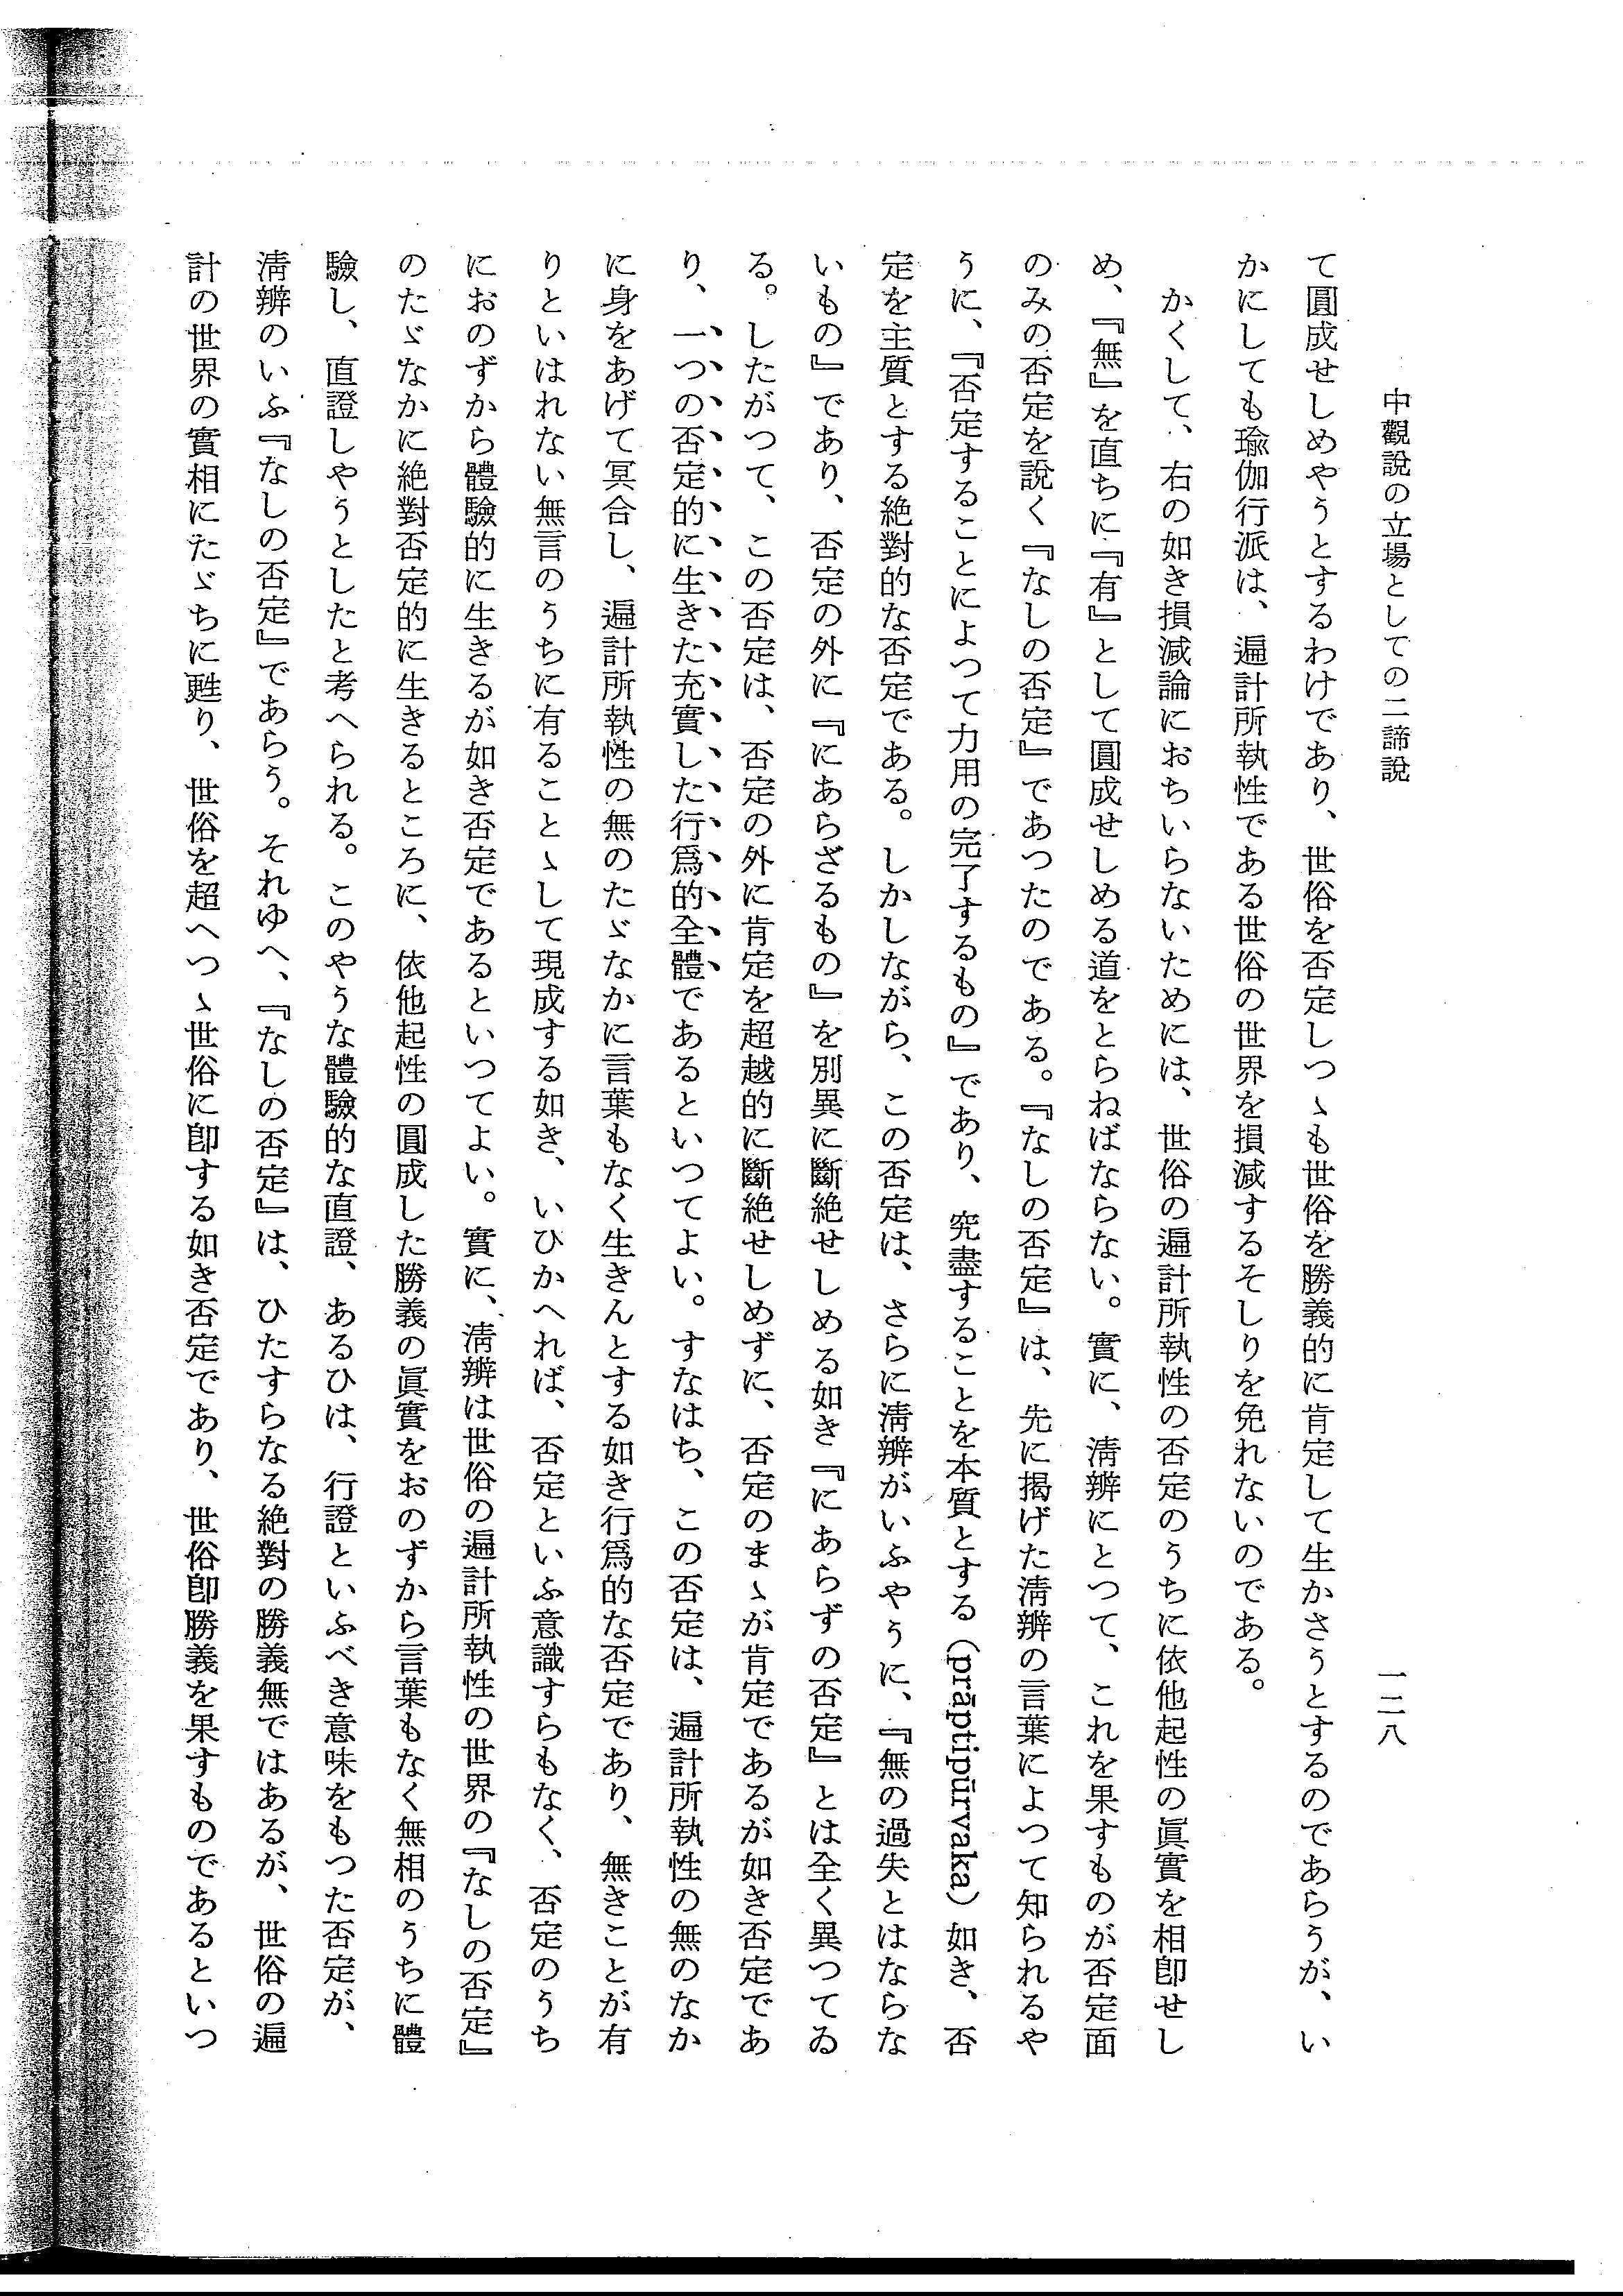 中觀說の立場としての二諦說
一二八
て圓成せしめやうとするわけであり、世俗を否定しつゝも世俗を勝義的に肯定して生かさうとするのであらうが、い
かにしても瑜伽行派は、遍計所執性である世俗の世界を損減するそしりを免れないのである。
かくして、右の如き損減論におちいらないためには、世俗の遍計所執性の否定のうちに依他起性の眞實を相卽せし
め、『無』を直ちに『有』として圓成せしめる道をとらねばならない。實に、淸辨にとつて、これを果すものが否定面
のみの否定を說く『なしの否定』であつたのである。『なしの否定』は、先に揭げた淸辨の言葉によつて知られるや
うに、『否定することによつて力用の完了するもの』であり、究盡することを本質とする（prāptipūrvaka）如き、否
定を主質とする絶對的な否定である。しかしながら、この否定は、さらに淸辨がいふやうに、『無の過失とはならな
いもの』であり、否定の外に『にあらざるもの』を別異に斷絶せしめる如き『にあらずの否定』とは全く異つてゐ
る。したがつて、この否定は、否定の外に肯定を超越的に斷絶せしめずに、否定のまゝが肯定であるが如き否定であ
り、一つの否定的に生きた充實した行爲的全體であるといつてよい。すなはち、この否定は、遍計所執性の無のなか
に身をあげて冥合し、遍計所執性の無のたゞなかに言葉もなく生きんとする如き行爲的な否定であり、無きことが有
りといはれない無言のうちに有ることゝして現成する如き、いひかへれば、否定といふ意識すらもなく、否定のうち
におのずから體驗的に生きるが如き否定であるといつてよい。實に、淸辨は世俗の遍計所執性の世界の『なしの否定』
のたゞなかに絶對否定的に生きるところに、依他起性の圓成した勝義の眞實をおのずから言葉もなく無相のうちに體
驗し、直證しやうとしたと考へられる。このやうな體驗的な直證、あるひは、行證といふべき意味をもつた否定が、
淸辨のいふ『なしの否定』であらう。それゆへ、『なしの否定』は、ひたすらなる絶對の勝義無ではあるが、世俗の遍
計の世界の實相にたゞちに甦り、世俗を超へつゝ世俗に卽する如き否定であり、世俗卽勝義を果すものであるといつ